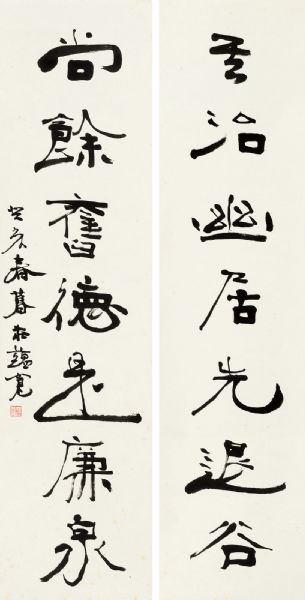 治幽居先退谷
尚餘舊德是廉泉
癸亥春暮莊蘊寬